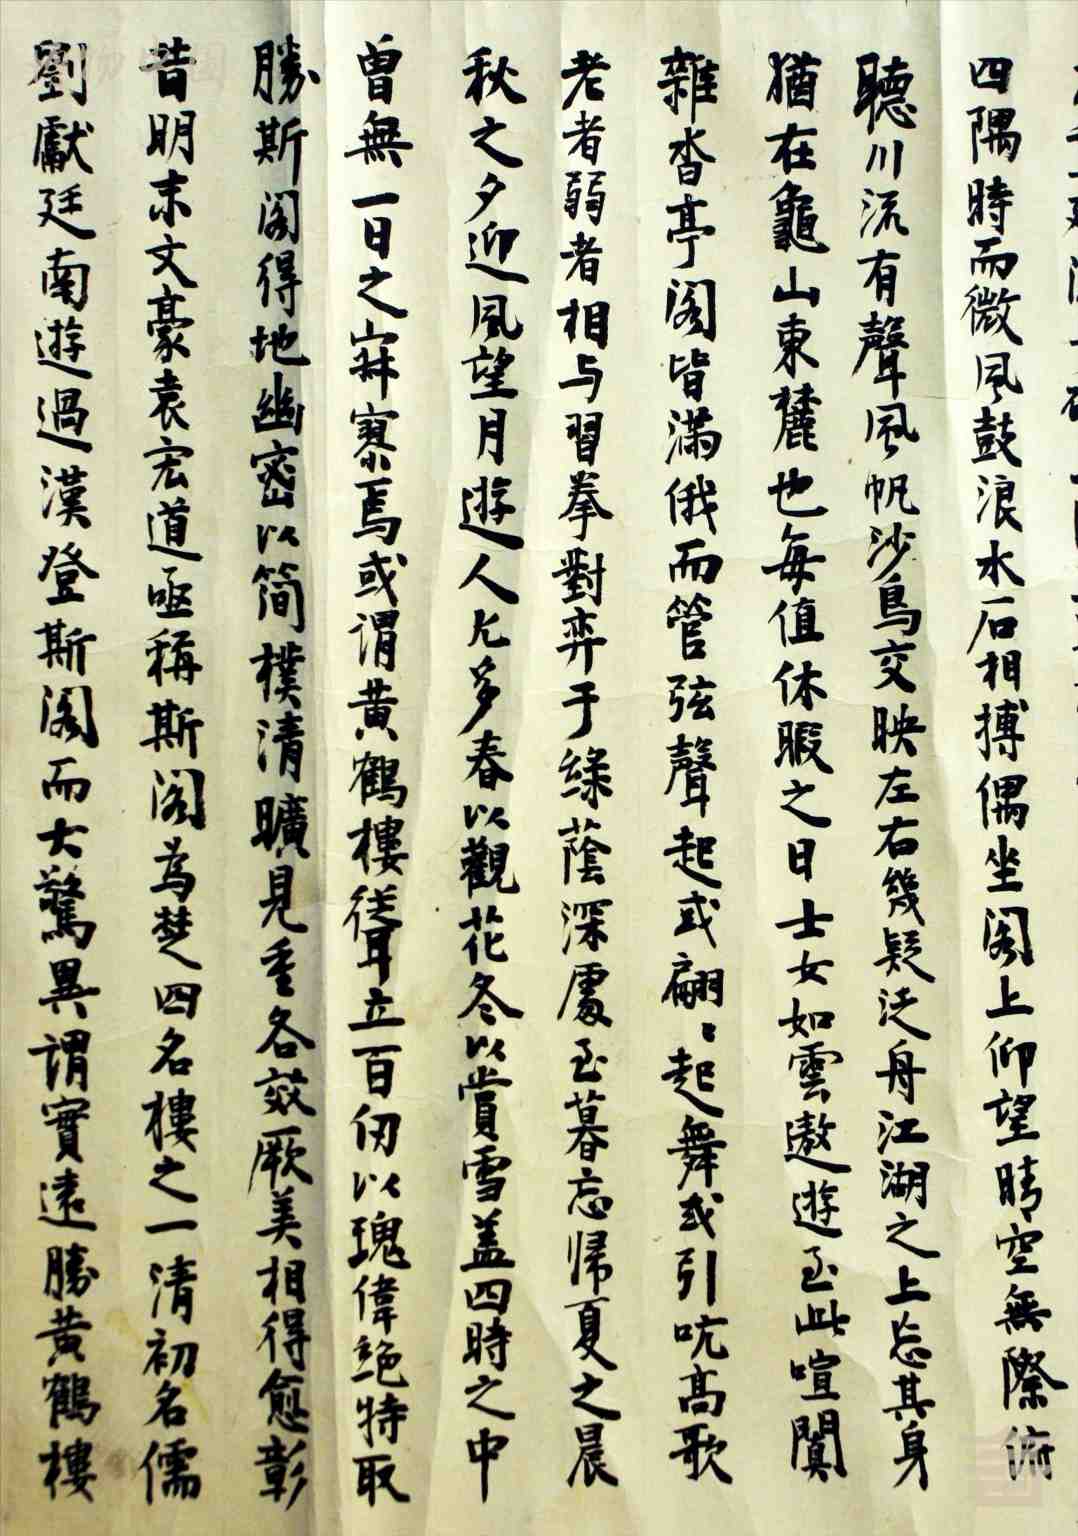 四隅時而微風鼓浪水石相搏偶坐阁上仰望晴空無際俯
聽川流有聲風帆沙鳥交映左右幾疑泛舟江湖之上忘其身
猶在龜山東麓也每值休暇之日士女如雲遨遊至此喧闐
雜沓亭阁皆滿俄而管弦聲起或翩〻起舞或引吭高歌
老者弱者相与習拳對弈于綠蔭深處至暮忘帰夏之晨
秋之夕迎風望月遊人尤多春以觀花冬以賞雪盖四時之中
曾無一日之寂寥焉或谓黄鶴樓聳立百仞以瑰偉絶特取
勝斯阁得地幽密以简樸清曠見重各效厥美相得愈彰
昔明末文豪袁宏道亟稱斯阁為楚四名樓之一清初名儒
劉獻廷南遊過漢登斯阁而大驚異謂實遠勝黄鶴樓